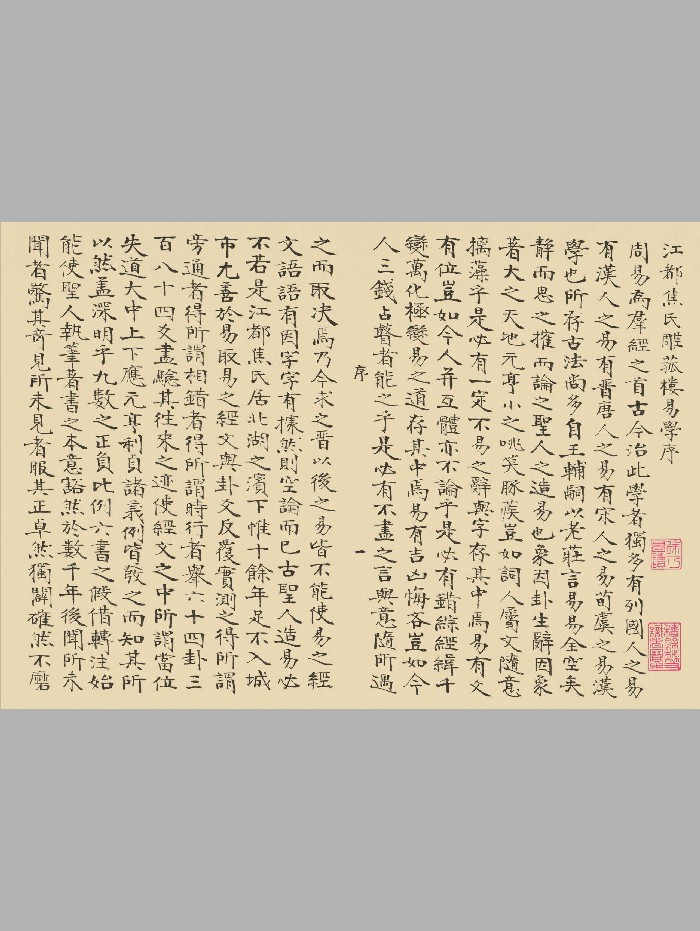 江都焦氏雕菰樓易學序
周易為羣經之首古今治此學者獨多有列國人之易
有漢人之易有晋唐人之易有宋人之易荀虞之易漢
學也所存古法尚多自王輔嗣以老莊言易易全空矣
静而思之推而論之聖人之造易也象因卦生辭因象
著大之天地元亨小之咷笑豚蔟豈如詞人屬文隨意
摛藻乎是必有一定不易之辭與字存其中焉易有文
有位豈如今人并互體亦不論乎是必有錯綜經緯千
變萬化極變易之道存其中焉易有吉凶悔吝豈如今
人三錢占瞽者能之乎是必有不盡之言與意隨所遇
序
一
之而取决焉乃今求之晋以後之易皆不能使易之經
文語語有因字字有據然則空論而已古聖人造易必
不若是江都焦氏居北湖之濱下帷十餘年足不入城
市尤善於易取易之經文與卦爻反覆實測之得所謂
旁通者得所謂相錯者得所謂時行者舉六十四卦三
百八十四爻盡驗其往來之迹使經文之中所謂當位
失道大中上下應元亨利貞諸義例皆發之而知其所
以然蓋深明乎九數之正負比例六書之假借轉注始
能使聖人執筆著書之本意豁然於數千年後聞所未
聞者驚其奇見所未見者服其正卓然獨闢確然不磨